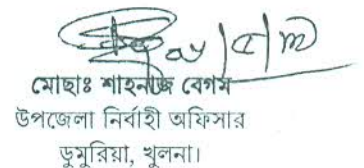 মোছাঃ শাহনাজ বেগম
উপজেলা নির্বাহী অফিসার
ডুমুরিয়া, খুলনা।